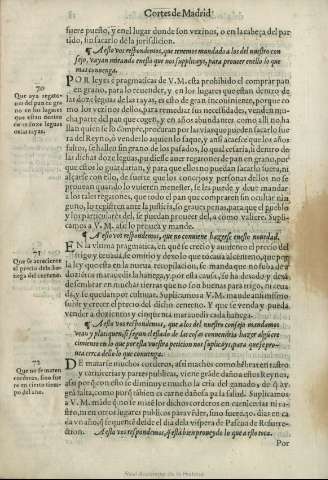 Cortes de Madrid
fuere pueſto, y en el lugar donde ſon vezinos, o en la cabeça del par
tido, ſin ſacarlo de la juriſdicion.
¶ A eſto vos reſpondemos, que tenemos mandado a los del nueſtro con
ſejo, vayan mirando eneſto que nos ſuplicays, para proueer enello lo que
mas conuenga.
70
Que aya regato-
nes del pan en gra
no en los lugares
que eſtan dentro
de las doze leguas
de las rayas.
POR leyes è pragmaticas de V. M. eſta prohibido el comprar pan
en grano, para lo reuender, y en los lugares que eſtan dentro de
las doze leguas de las rayas, es eſto de gran inconuiniente, porque co
mo los vezinos dellos, para remediar ſus neceſſidades, venden mu
cha parte del pan que cogen, y en años abundantes como alli no ha
llan quien ſe lo compre, procuran por las vias que pueden ſacarlo fue
ra del Reyno, o venderlo a quien lo ſaque, y anſi acaeſce que los años
faltos, ſe hallan ſin grano de lo paſſado, lo qual ceſſaria, ſi dentro de
las dichas doze leguas, pudieſſe auer regatones de pan en grano, por
que eſtos lo guardarian, y para que ellos no puedan ſacarlo fuera, ni
alçarſe con ello, de ſuerte que los concejos y perſonas dellos no ſe
prouean quando lo vuieren meneſter, ſe les puede y deue manda
a los tales regatones, que todo el pan que compraren ſin ocultar nin
guno, lo regiſtren ante la juſticia, ſo graues penas, para que el pueblo
y los particulares del, ſe puedan proueer del, a como valiere. Supli-
camos a V. M. aſsi lo prouea y mande.
¶ A eſto vos reſpondemos, que no conuiene hazerſe eneſto nouedad.
71
Que ſe acreciente
el precio dela ha-
nega del centeno.
EN la vltima pragmatica, en que ſe crecio y aumento el precio del
trigo y ceuada, ſe omitio y dexo lo que tocaua al centeno, porque
la ley que eſta en la nueua recopilacion, ſe manda que no ſuba de
dozientos marauedis la hanega, y por eſta cauſa, ſe ha dexado y dexa
de ſembrar en muchas tierras que no ſon buenas para trigo, ni ceua
da, y ſe quedan por cultiuar. Suplicamos a V. M. mande anſi miſmo
ſubir y crecer el precio del dicho centeno. Y que ſe venda y pueda
vender a dozientos y cinquenta marauedis cada hanega.
¶ A eſto vos reſpondemos, que a los del nueſtro conſejo mandamos
vean y platiquen,
cimiento en lo que por eſta vueſtra peticion nos ſuplicays, para que ſe pro-
uea cerca dello lo que conuenga.
72
Que no ſe maten
corderos, ſino fue
re en cierto tiem-
po del año.
DE matarſe muchos corderos, aſsi machos como hembras en raſtro
y carnicerias y partes publicas, viene grāde daño a eſtos Reynos,
aſsi porq̃ con eſto ſe diminuye mucho la cria del ganado y de q̃ ay
grā falta, como porq̃ tābien es carne dañoſa pa la ſalud. Suplicamos
a V. M. māde q̃ no ſe mate los dichos corderos en carnicerias ni ra-
ſtro, ni en otros lugares publicos para vēder, ſino fuere 40. dias en ca
da vn año, q̃ ſe cuenten deſde el dia dela viſpera de Paſcua de Reſurre-
ction.
¶ A eſto vos reſpondemos, q̃ eſtà bien proueydo lo que a eſto toca.
Por
Real Academia de la Historia